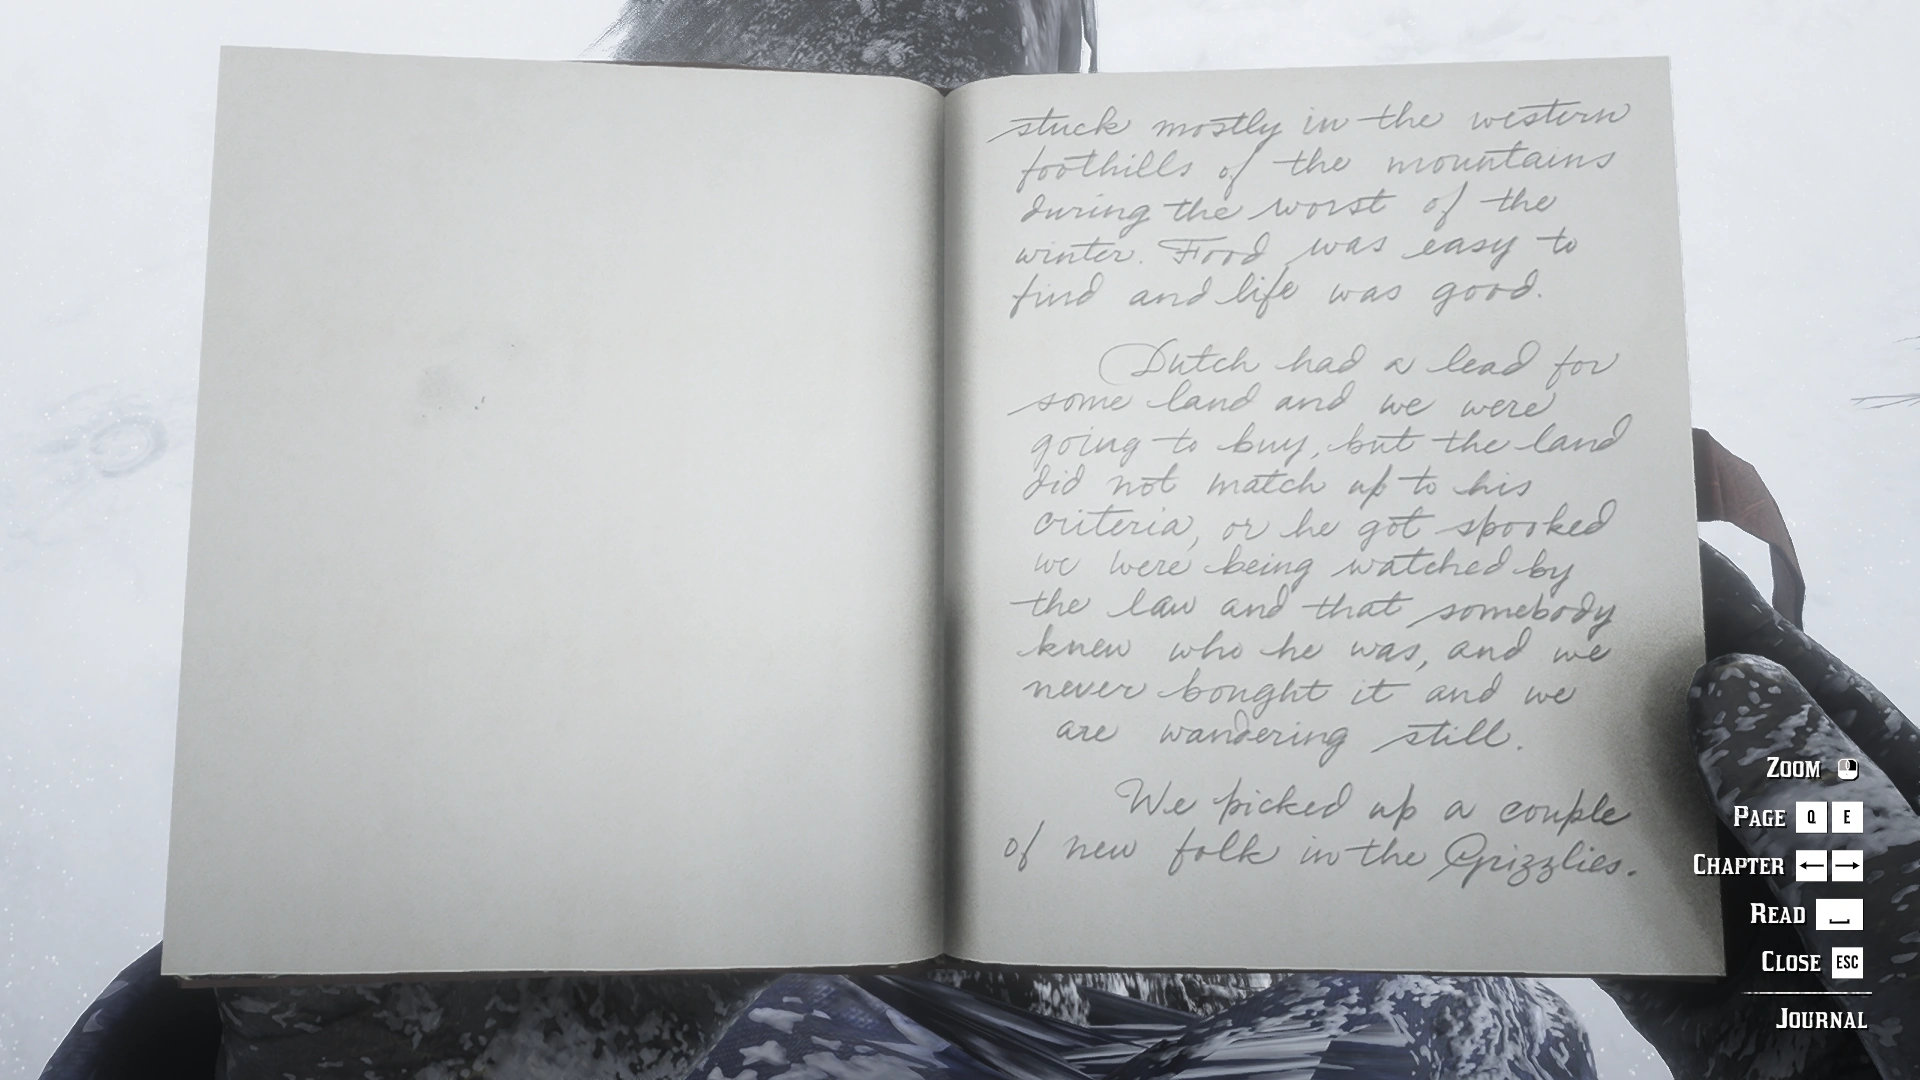 stuck mostly in the western
foothills of the mountains
during the worst of the
winter. Food was easy to
find and life was good.
Dutch had a lead for
some land and we were
going to buy, but the land
did not match up to his
criteria, or he got spooked
we were being watched by
the law and that somebody
knew who he was, and we
never bought it and we
are wandering still.
We picked up a couple
of new folk in the Grizzlies.
ZOOM
PAGE Q E
CHAPTER ← →
READ
CLOSE ESC
JOURNAL